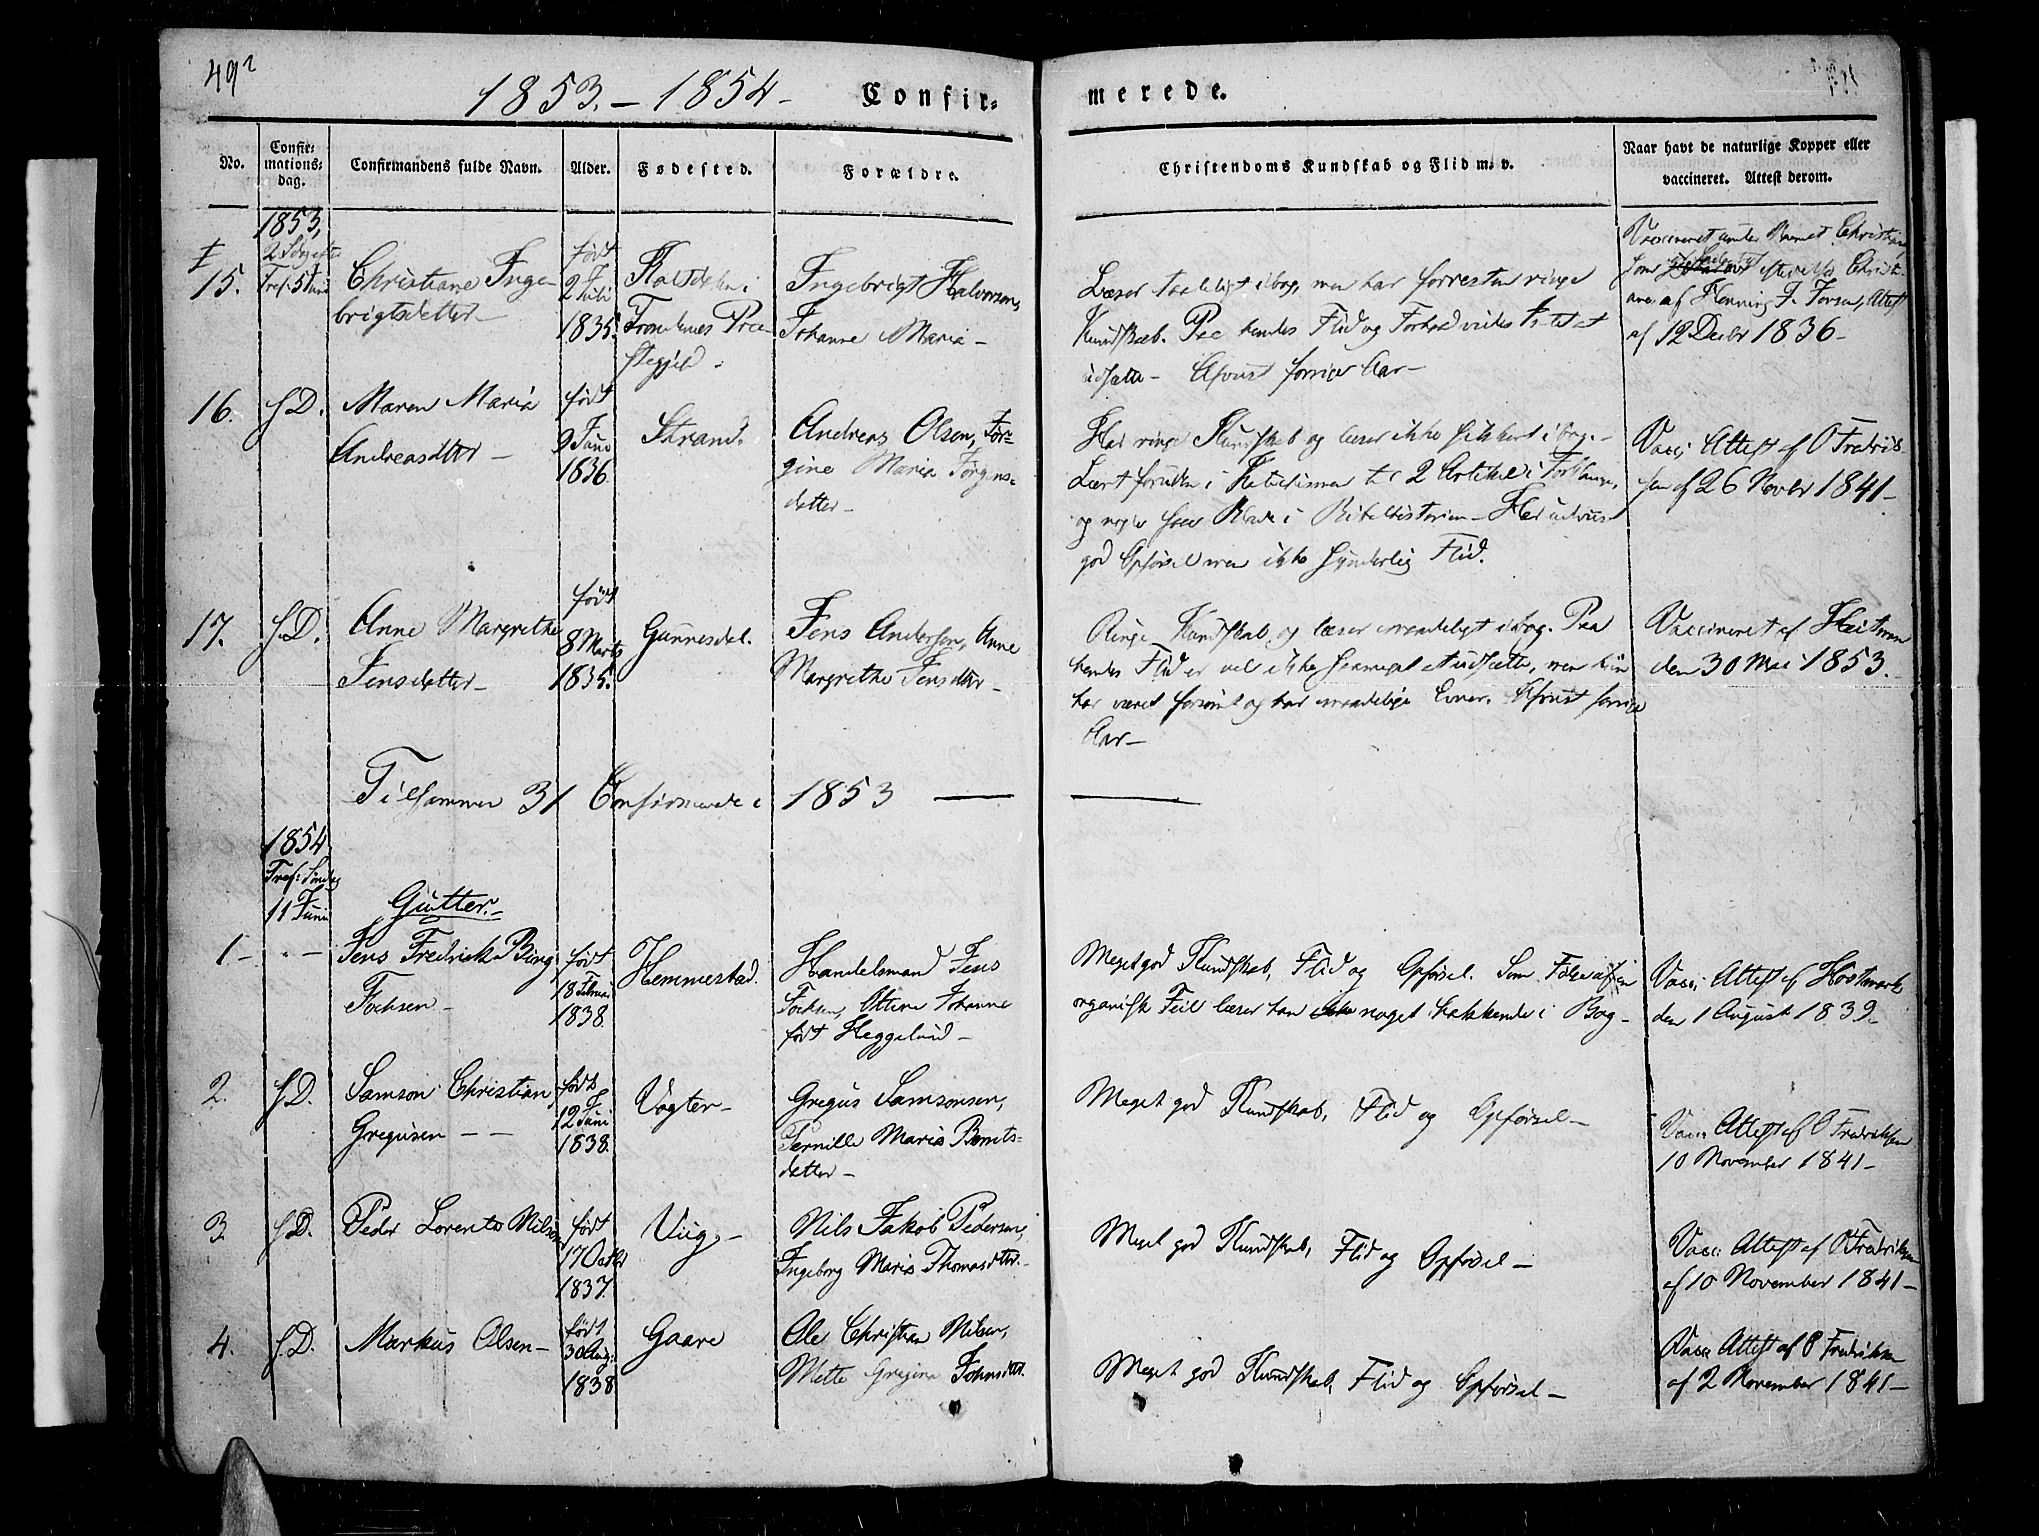 49²
1853. – 1854 –
Confir-
merede.
No.
Confir-
mations-
dag.
Confirmandens fulde Navn.
Alder.
Fødested.
Forældre.
Christendoms Kundskab og Flid m. v.
Naar havt de naturlige Kopper eller
vaccineret. Attest derom.
1853,
15.
Tref: 5 Juni
Christiane Inge-
brigtsdatter –
født
2 Juli
1835.
i
Trondenes Præ-
stegjeld.
Ingebrigt Halvorsen,
Johanne Maria –
Læser taaleligt i bog, men har forresten ringe
Kundskab. Paa hendes Flid og Forhold vides Intet at
udsætte – Afviist forrige Aar –
Vaccineret under Navnet Christian
af Henning J. Attest
af 12 Decbr 1836 –
16.
S.D.
Maren Maria
Andreasdtter –
født
9 Juni
1836
Strand.
Andreas Olsen, Jør-
gine Maria Jørgens-
datter –
Har ringe Kundskab og læser ikke sikkert i bog. –
Lært foruden i Katechismen til 2 Artikel i Forklaringen,
og nogle faa Blade i Bibelhistorien – Har udviist
god Opførsel men ikke synderlig Flid.
Vacc: Attest af O Fredrik-
sen af 26 Novbr 1841 –
17.
S.D.
Anne Margrethe
Jensdatter –
født
8 Marts
1835.
Gunnesdal.
Jens Andersen, Anne
Margrethe Jensdtter –
Ringe Kundskab og læser maadeligt i bog. Paa
hendes Flid er vel ikke saameget at udsætte, men hun
har været forsømt og har maadelige Evner. Afviist forrige
Aar –
Vaccineret af Heitman
den 30 Mai 1853. –
Tilsammen 31 Confirmerede i 1853 ——
1854
Tref: Søndag
11 Juni
Gutter. –
1 –
" –
Jens Fredrik Bing
Fochsen –
født
18 Februar
1838.
Hemmestad.
Handelsmand Jens
Fochsen, Ottine Johanne
født Heggelund –
Meget god Kundskab, Flid og Opførsel. Som Følge af en
organisk Feil læser han noget hakkende i Bog –
Vacc: Attest af Hostmark
den 1 August 1839 –
2.
S.D.
Samson Christian
Gregusen – –
født
12 Juni
1838.
Vogter –
Gregus Samsonsen,
Pernille Maria Bernts-
datter –
Meget god Kundskab, Flid og Opførsel –
Vacc: Attest af O Fredriksen
10 November 1841 –
3.
S.D.
Peder Lorents Nilsen
født
17 Octbr
1837.
Viig. –
Nils Jakob Pedersen,
Ingeborg Maria Thomasdtter. –
Meget god Kundskab, Flid og Opførsel –
Vacc: Attest af O Fredriksen
af 10 November 1841 –
4.
S.D.
Markus Olsen –
født
30 Aug:
1838
Gaare
Ole Christian Nilsen,
Mette Gregine Johnsdtter.
Meget god Kundskab, Flid og Opførsel –
Vacc: Attest af O Fredriksen
af 2 November 1841 –